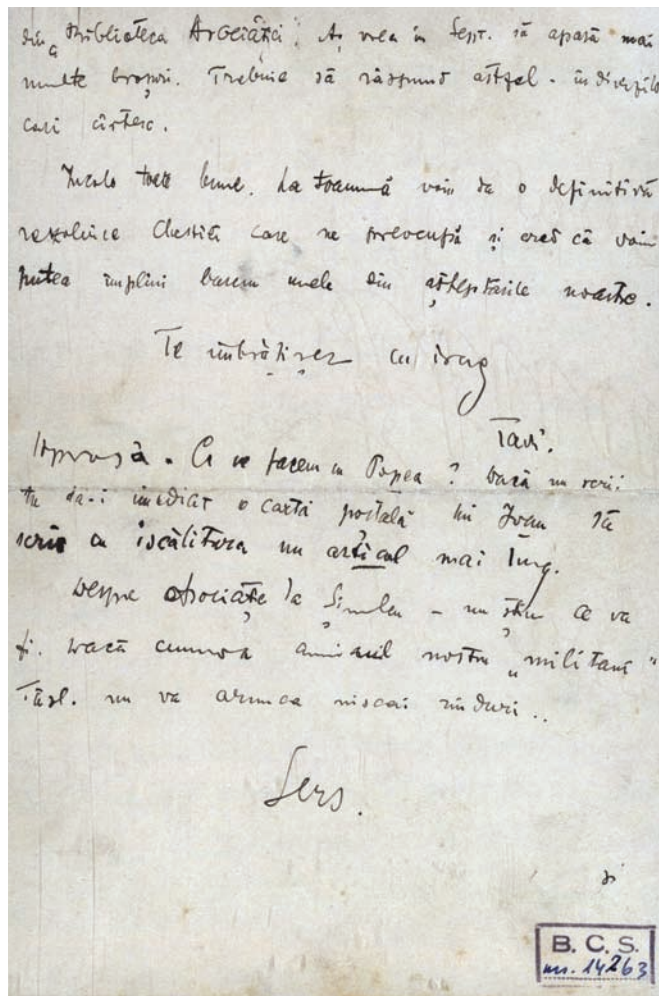 din „Biblioteca Asociației". Aș vrea în Sept. să apară mai
multe broșuri. Trebuie să răspund astfel - indivizilor
cari cârtesc.
Încolo toate bune. La toamnă vom da o definitivă
rezolvire chestiei care ne preocupă și cred că vom
putea împlini barem unele din așteptările noastre.
Te îmbrățișez cu drag
Tavi.
Ce ne facem cu Popea? Dacă nu scrii
tu dă-i imediat o cartă poștală lui Ioan să
scrie cu iscălitura un articol mai lung.
Despre Asociație la Șimleu - nu știu ce va
fi. Dacă cumva amicul nostru „militant"
Tăsl. nu va arunca niscai rânduri..
B. C. S.
ms. 14263